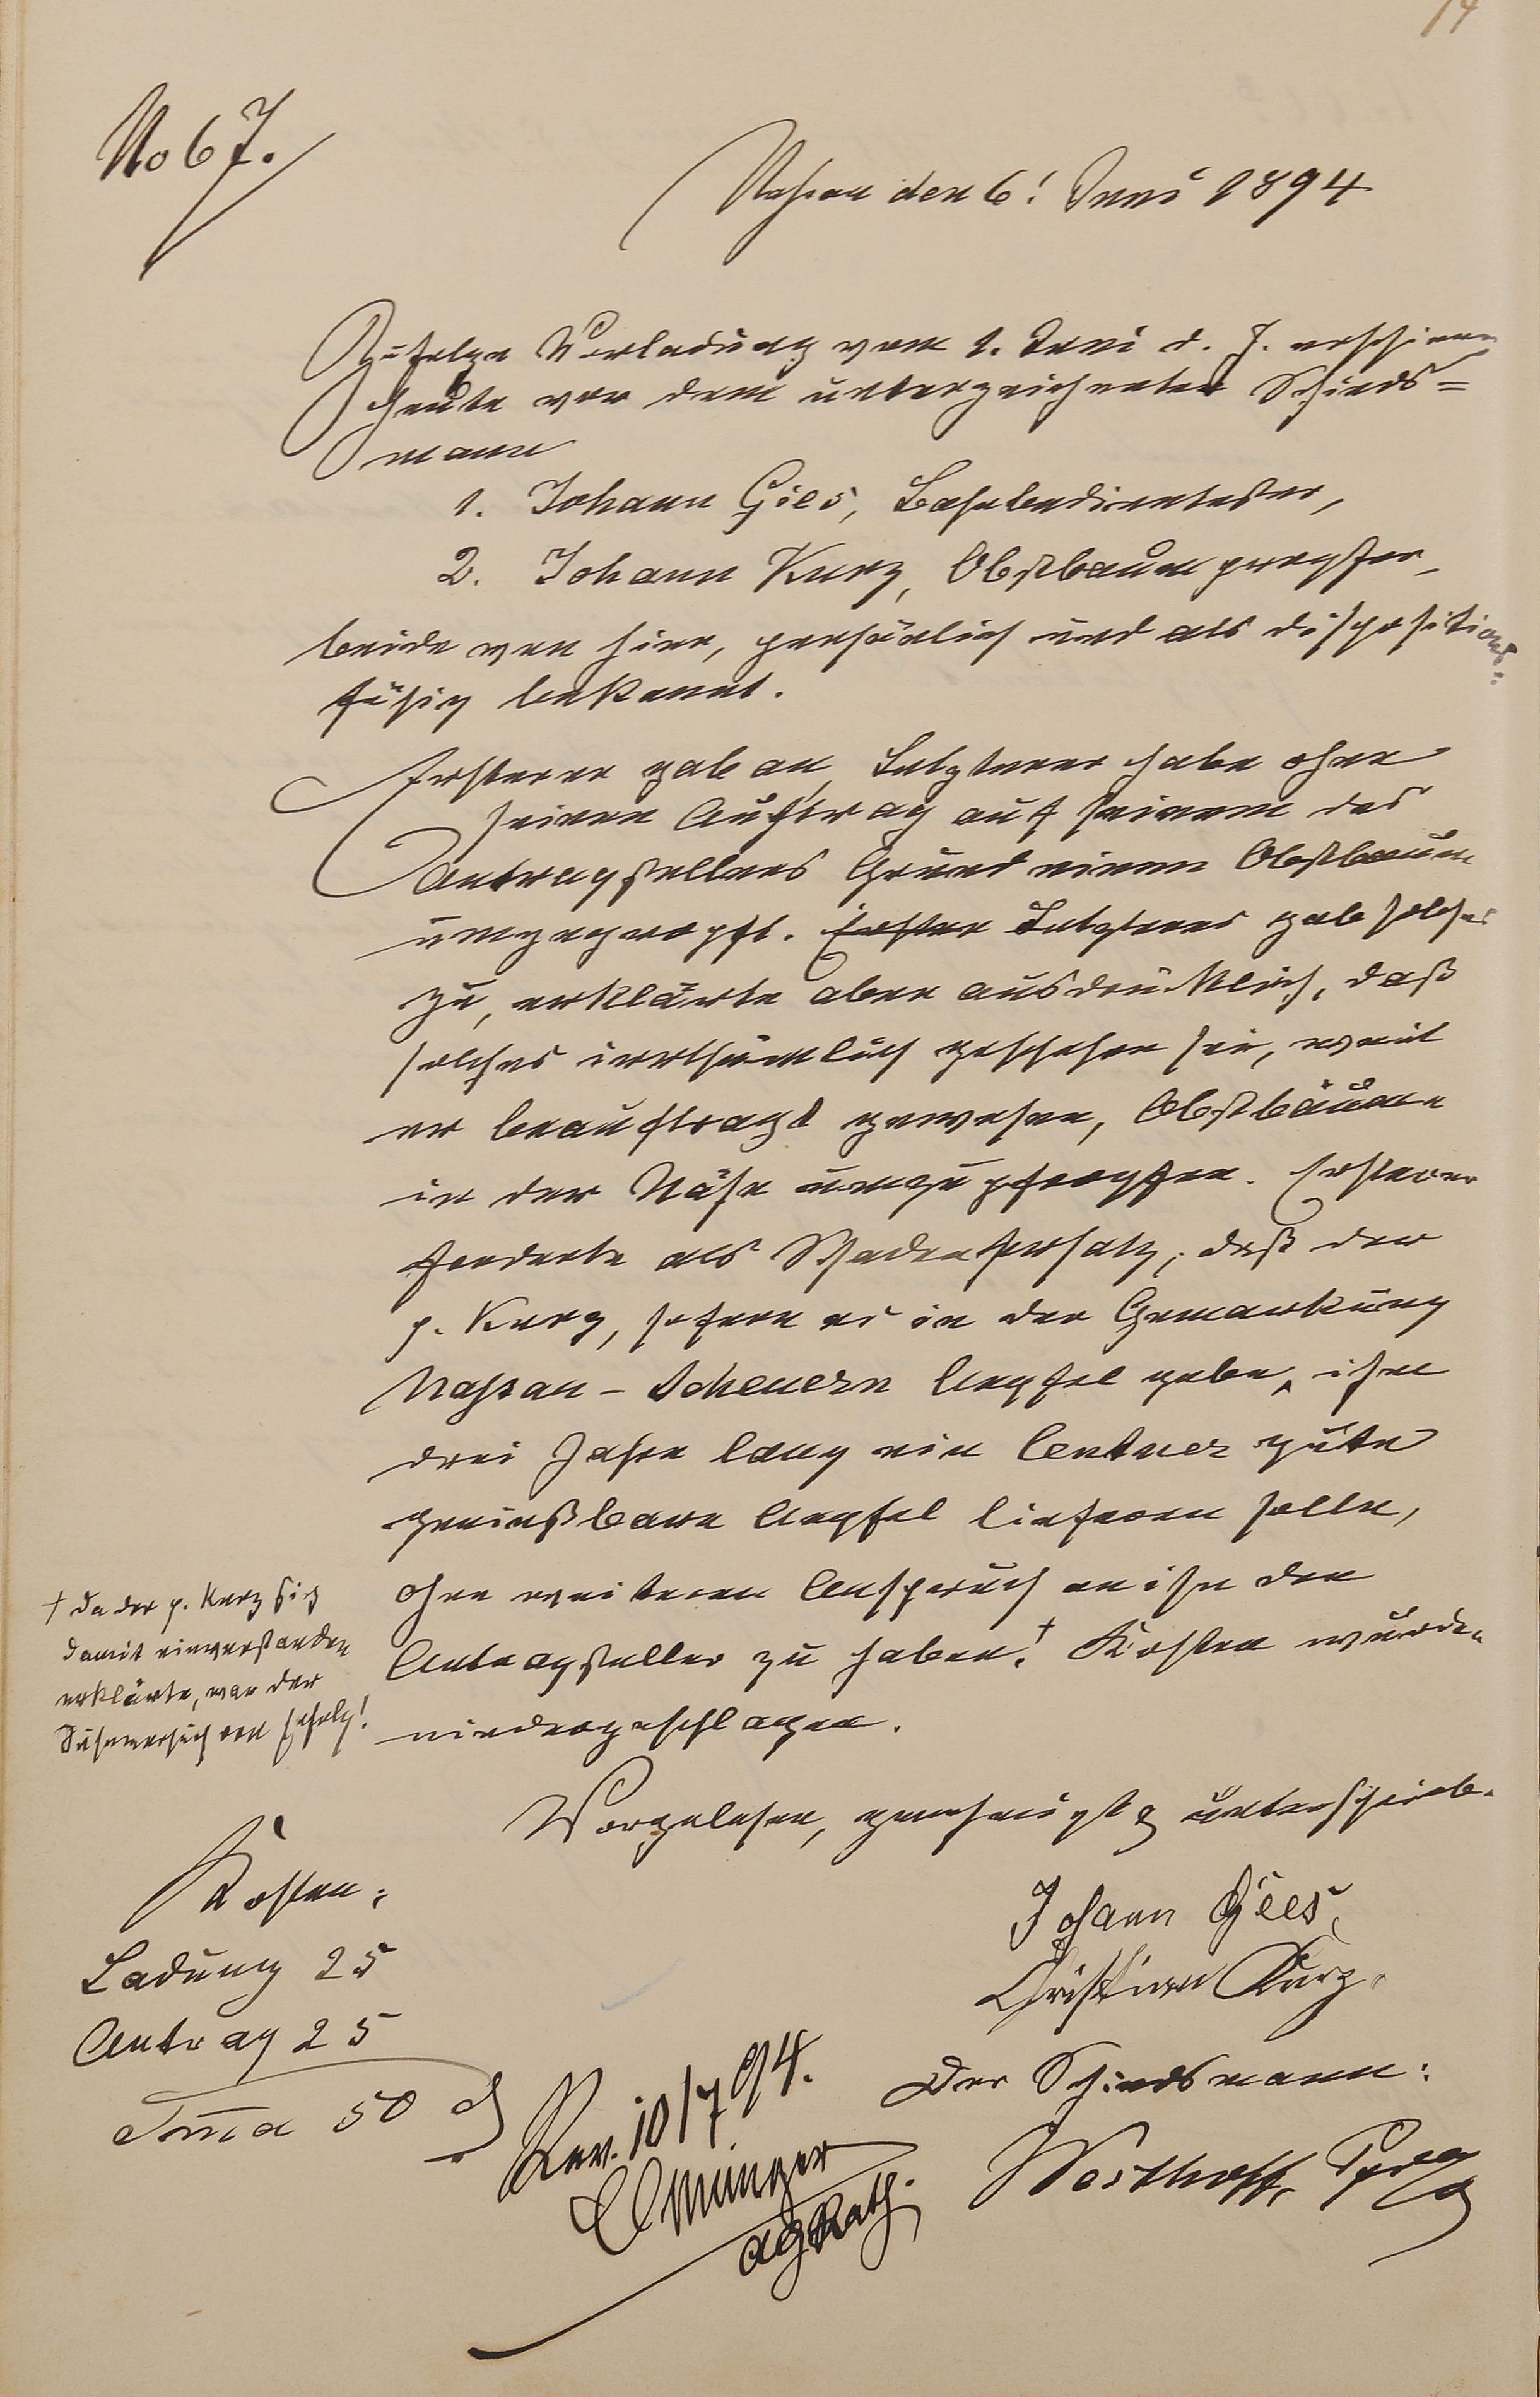 14
No 67.
Nassau den 6! Juni 1894
Zufolge Vorladung vom 1. Juni d. J. erschienen
heute vor dem unterzeichneten Schieds=
mann
1. Johann Gies, Bahnbediensteter,
2. Johann Kurz, Obstbaumpropfer,
beide von hier, persönlich und als dispositions=
fähig bekannt.
Ersterer gab an, Letzterer habe ohne
seinen Auftrag auf seinem des
Antragstellers Grund einen Obstbaum
umgepropft. Erster Letzterer gab solches
zu, erklärte aber ausdrücklich, daß
solches irrthümlich geschehen sei, weil
er beauftragt gewesen, Obstbäume
in der Nähe umzupfropfen. Ersterer
forderte als Schadenersatz, daß der
p. Kurz, sofern es in der Gemarkung
Nassau-Scheuern Aepfel gebe, ihm
drei Jahre lang ein Centner gute
genießbare Aepfel liefern solle,
ohne weiteren Anspruch an ihn den
Antragsteller zu haben.† Kosten wurden
niedergeschlagen.
† da der p. Kurz sich
damit einverstanden
erklärte, war der
Sühneversuch von Erfolg!
Vorgelesen, genehmigt & unterschrieb.
Johann Gies,
Christian Kurz.
Der Schiedsmann:
Westhoff,
Kosten:
Ladung 25
Antrag 25
Sma 50 ₰
Rev. 10/7 94.
AGRath.